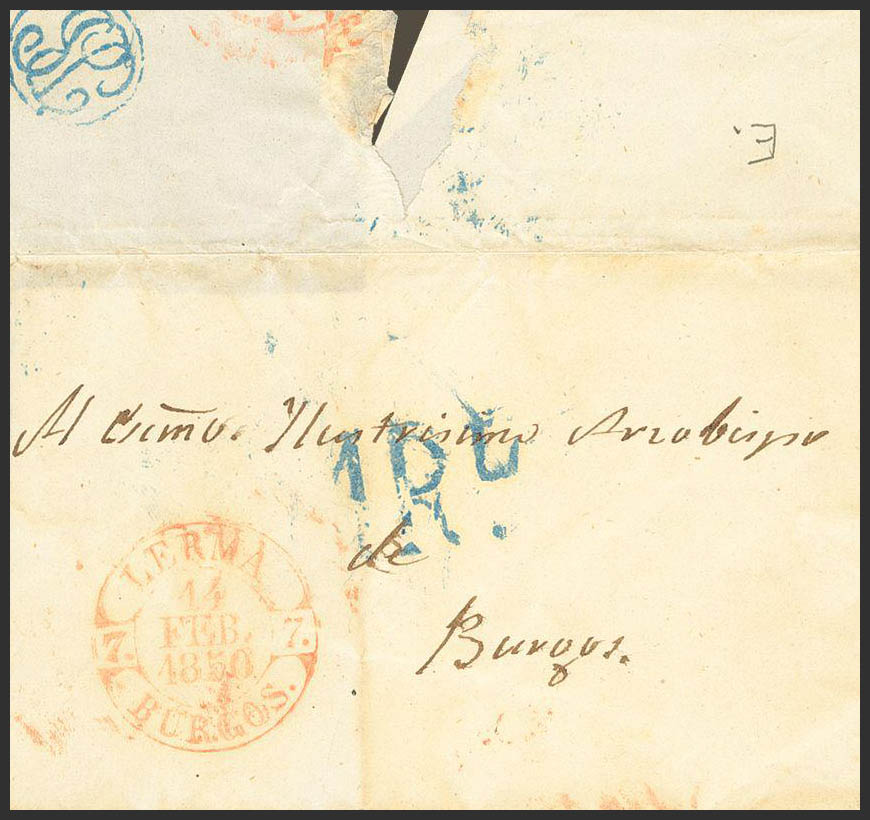 E.
Al Exc̅mo. Ilustrisimo Arzobispo
de
Burgos.
LERMA
14
FEB.
1850
7. 7.
BURGOS.